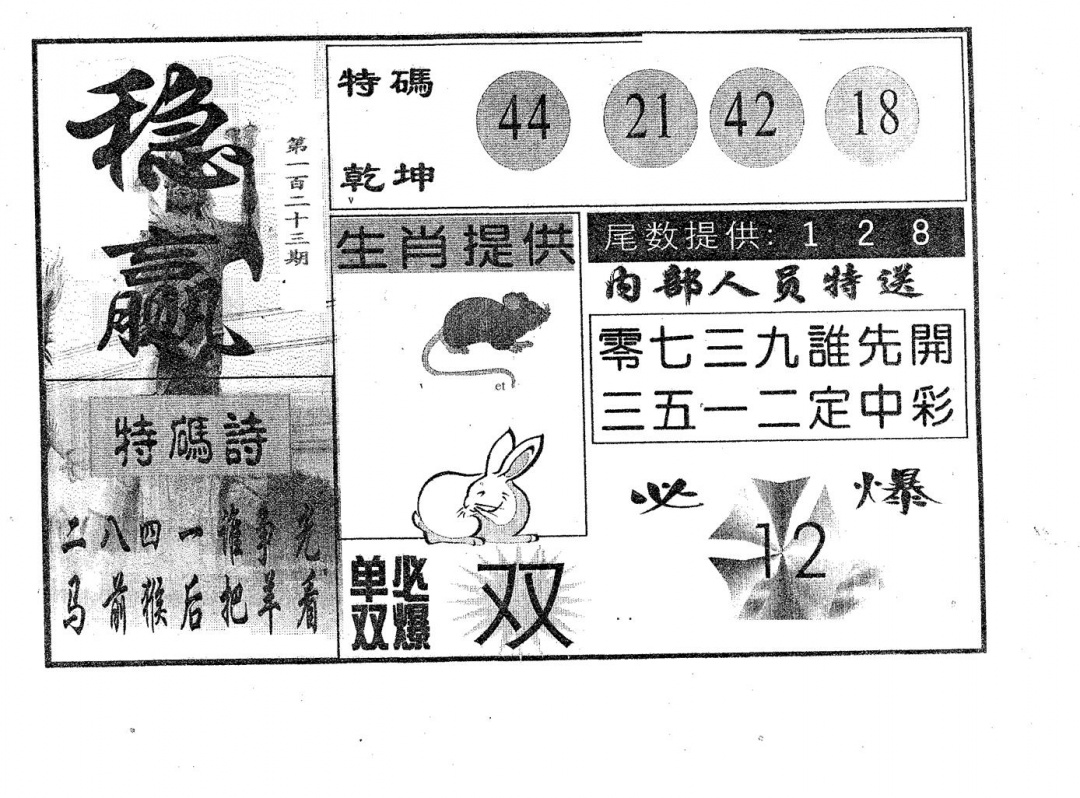 稳赢
第一百二十三期
特碼詩
二八四一谁争先
马前猴后把羊看
特碼
乾坤
44 21 42 18
生肖提供
et
单双必爆
双
尾数提供: 1 2 8
内部人员特送
零七三九誰先開
三五一二定中彩
必爆
12